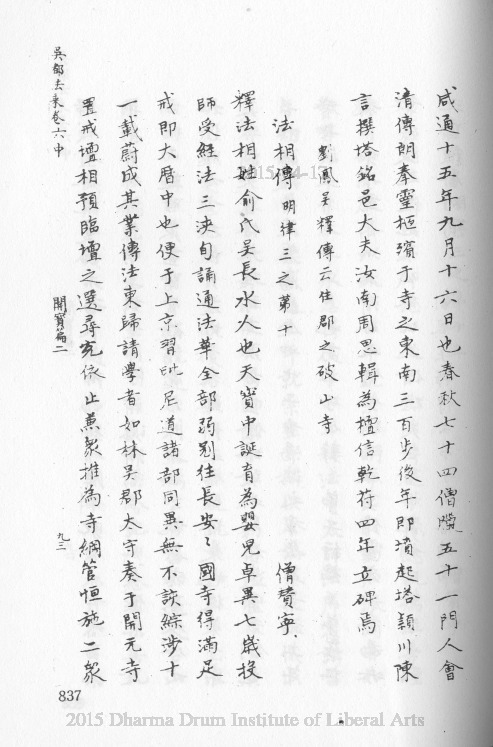 咸通十五年九月十六日也春秋七十四僧臘五十一門人會
清傳朗奉靈柩殯于寺之東南三百步後年即墳起塔頴川陳
言撰塔銘邑大夫汝南周思輯為檀信乾符四年立碑焉
劉鳳吴釋傳云住郡之破山寺
法相傳明律三之第十 僧賛寧
釋法相姓俞氏吴長水人也天寶中誕育為嬰兒卓異七歲投
師受經法三浹旬誦通法華全部弱冠往長安安國寺得滿足
戒即大曆中也便于上京習毗尼道諸部同異無不該綜涉十
一載蔚成其業傳法東歸請學者如林吴郡太守奏于開元寺
置戒壇相預臨壇之選尋充依止兼衆推為寺綱管恒施二衆
吳都法乘卷六中
開寶篇二
九三
837
2015 Dharma Drum Institute of Liberal Arts